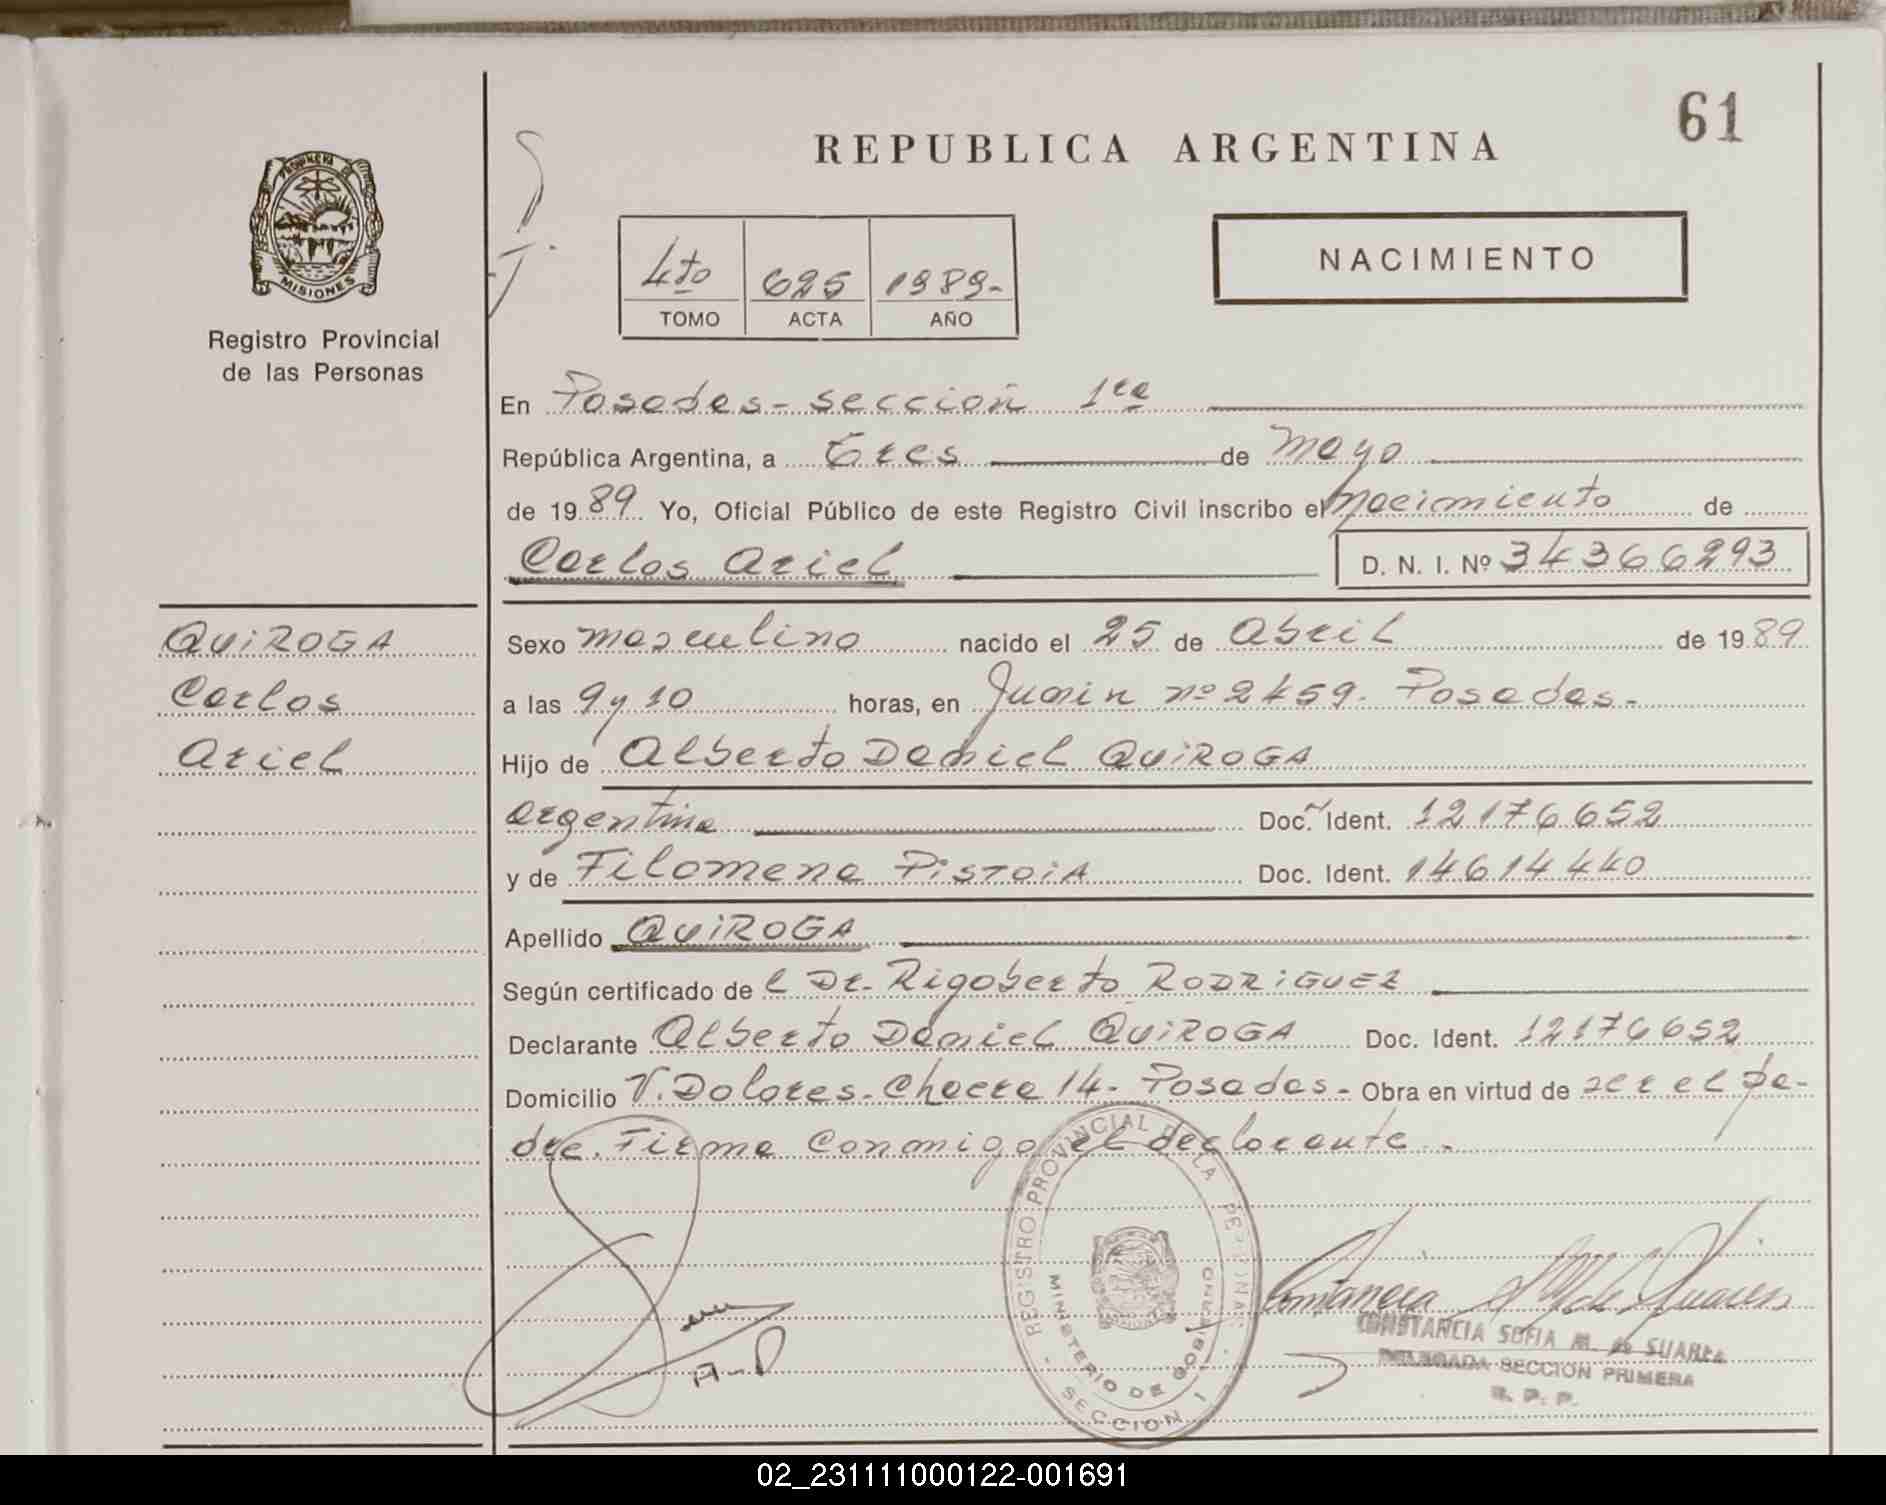 61
REPUBLICA ARGENTINA
PROVINCIA DE
MISIONES
Registro Provincial
de las Personas
4to 625 1989-
TOMO ACTA AÑO
NACIMIENTO
En Posadas - sección 1ra
República Argentina, a tres de mayo
de 1989 Yo, Oficial Público de este Registro Civil inscribo el nacimiento de
Carlos Ariel D. N. I. Nº 34366293
QUIROGA
Carlos
Ariel
Sexo masculino nacido el 25 de Abril de 1989
a las 9 y 10 horas, en Junin nº 2459. Posadas.-
Hijo de Alberto Daniel QUIROGA
argentino Doc. Ident. 12176652
y de Filomena PISTOIA Doc. Ident. 14614440
Apellido QUIROGA
Según certificado de l Dr. Rigoberto RODRIGUEZ
Declarante Alberto Daniel QUIROGA Doc. Ident. 12176652
Domicilio V. Dolores. Chacra 14. Posadas.- Obra en virtud de ser el pa-
dre. Firma conmigo el declarante.-
REGISTRO PROVINCIAL DE LA PERSONAS
MINISTERIO DE GOBIERNO
SECCION 1
CONSTANCIA SOFIA M. de SUAREZ
DELEGADA SECCION PRIMERA
R. P. P.
02_231111000122-001691